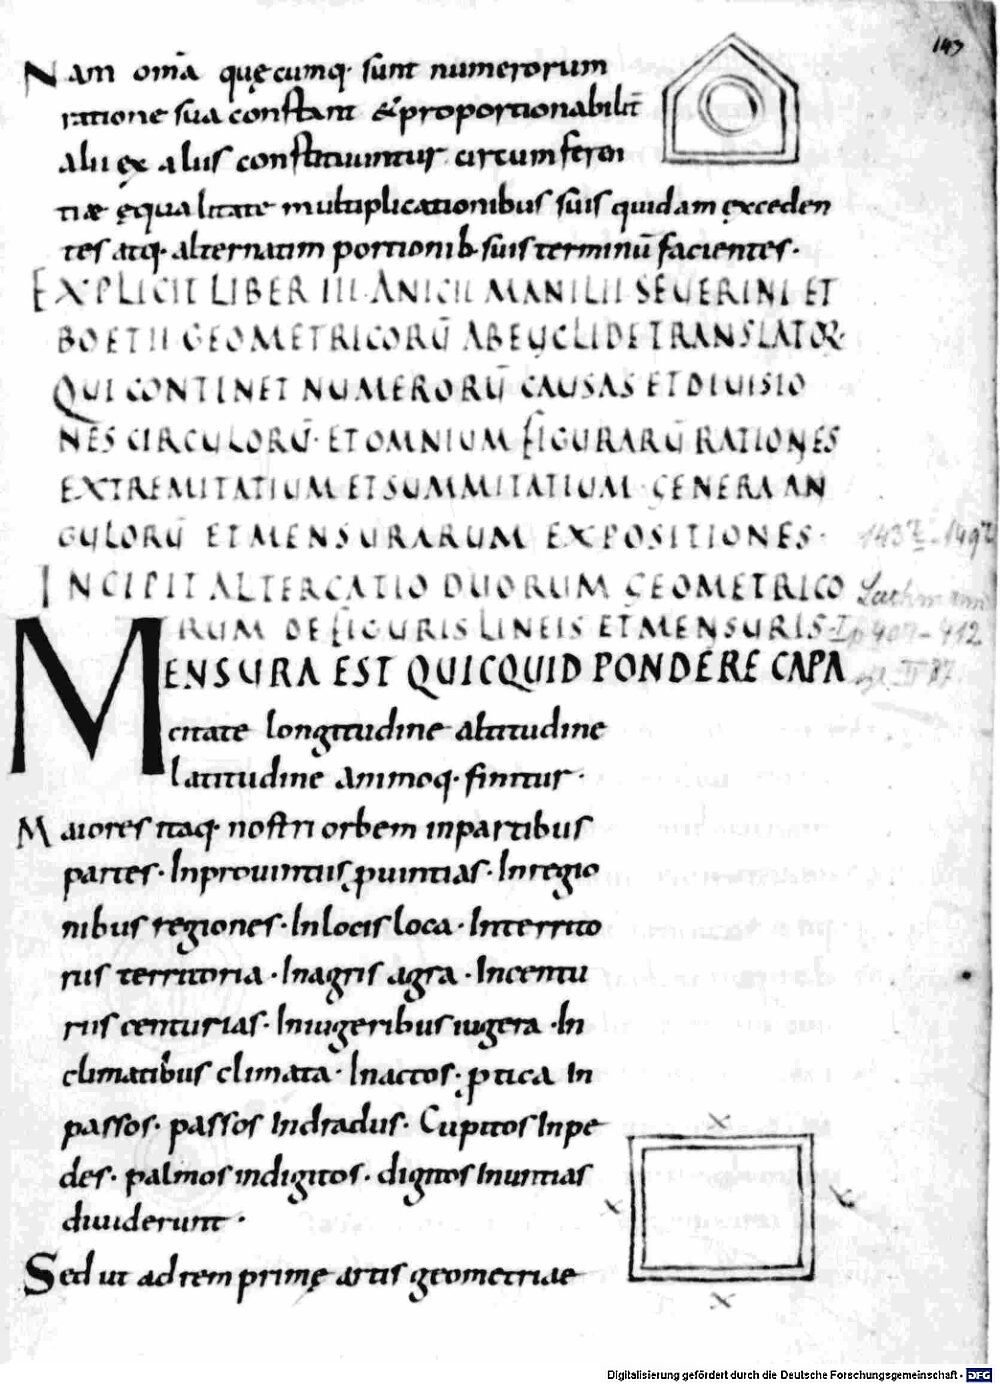 147
Nam om̄a quęcumq· sunt numerorum
ratione sua constant & proportionabilit̄
alii ex aliis constituuntur circumferen
tiæ ęqualitate multiplicationibus suis quidam exceden
tes atq· alternatim portionib· suis terminū facientes·
EXPLICIT LIBER III· ANICII MANILII SEUERINI ET
BOETII GEOMETRICORŪ AB EUCLIDE TRANSLATOR·
QUI CONTINET NUMERORŪ CAUSAS ET DIUISIO
NES CIRCULORŪ· ET OMNIUM FIGURARŪ RATIONES
EXTREMITATIUM ET SUMMITATIUM· GENERA AN
GULORŪ ET MENSURARUM EXPOSITIONES·
INCIPIT ALTERCATIO DUORUM GEOMETRICO
RUM DE FIGURIS LINEIS ET MENSURIS·
MENSURA EST QUICQUID PONDERE CAPA
citate longitudine altitudine
latitudine animoq· finitur·
Maiores itaq· nostri orbem in partibus
partes· In prouintiis ꝓuintias· In regio
nibus regiones· In locis loca· In territo
riis territoria· In agris agra· In centu
riis centurias· In iugeribus iugera· In
climatibus climata· In actos· ꝑtica In
passos· passos In dradus· Cupitos In pe
des· palmos in digitos· digitos In untias
diuiderunt·
Sed ut ad rem primę artis geometriae
x
x
x
x
143ᵛ-149ᵛ
Lachmann
p 407-412
Digitalisierung gefördert durch die Deutsche Forschungsgemeinschaft - DFG